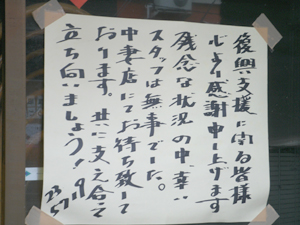 復興支援に関る皆様
心より感謝申し上げます
残念な状況の中、幸い
スタッフは無事でした。
中妻店にてお待ち致して
おります。共に支え合って
立ち向いましょう!
23